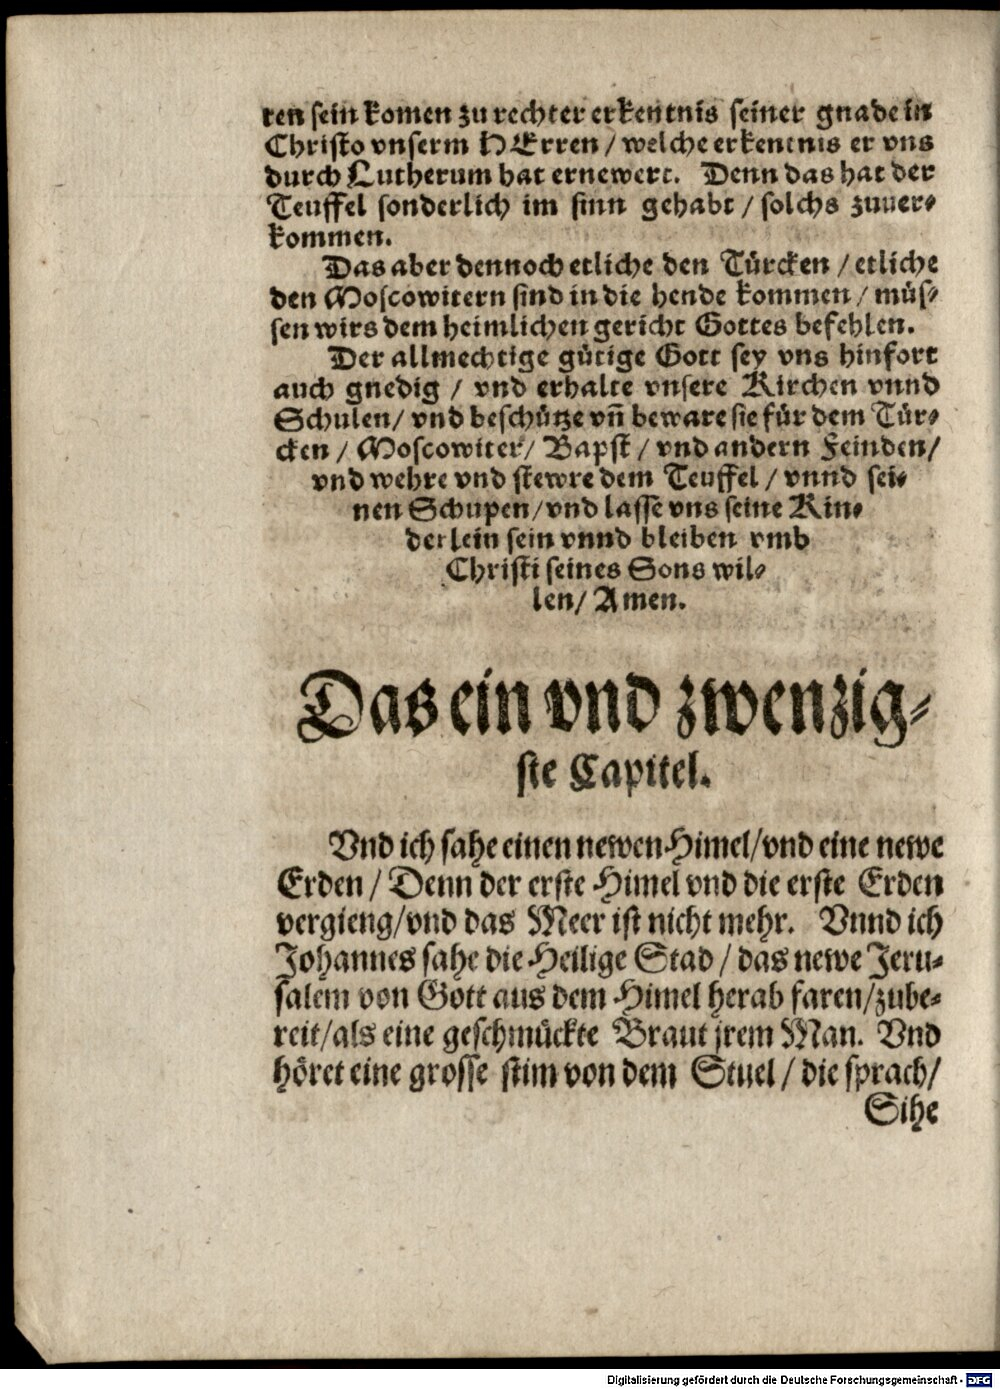 ren sein komen zu rechter erkentnis seiner gnade in
Christo vnserm HErren / welche erkentnis er vns
durch Lutherum hat ernewert. Denn das hat der
Teuffel sonderlich im sinn gehabt / solchs zuuer-
kommen.
Das aber dennoch etliche den Türcken / etliche
den Moscowitern sind in die hende kommen / müs-
sen wirs dem heimlichen gericht Gottes befehlen.
Der allmechtige gütige Gott sey vns hinfort
auch gnedig / vnd erhalte vnsere Kirchen vnnd
Schulen / vnd beschütze vñ beware sie für dem Tür-
cken / Moscowiter / Bapst / vnd andern Feinden /
vnd wehre vnd stewre dem Teuffel / vnnd sei-
nen Schupen / vnd lasse vns seine Kin-
derlein sein vnnd bleiben vmb
Christi seines Sons wil-
len / Amen.
Das ein vnd zwenzig-
ste Capitel.
Vnd ich sahe einen newen Himel / vnd eine newe
Erden / Denn der erste Himel vnd die erste Erden
vergieng / vnd das Meer ist nicht mehr. Vnnd ich
Johannes sahe die Heilige Stad / das newe Jeru-
salem von Gott aus dem Himel herab faren / zube-
reit / als eine geschmückte Braut jrem Man. Vnd
höret eine grosse stim von dem Stuel / die sprach /
Sihe
Digitalisierung gefördert durch die Deutsche Forschungsgemeinschaft - DFG